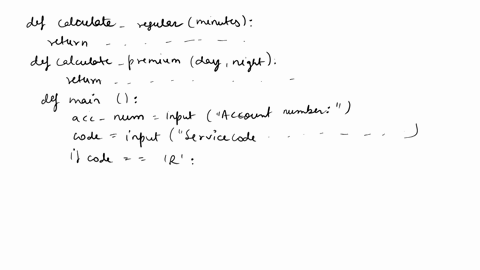 def calculate_regular(minutes):
return . . . . . . . . . .
def calculate_premium(day, night).
return . . . . . . . . . .
def main ():
acc_num = input ("Account number:")
code = input ("Service code . . . . . . . . )
if code == 'R':